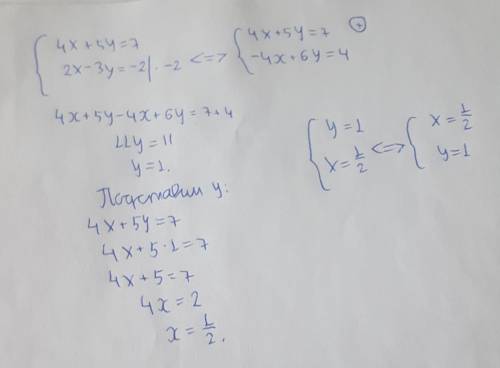 { 4x+5y=7
2x-3y=-2 | · -2 <=> { 4x+5y=7
-4x+6y=4 (+)
4x+5y-4x+6y=7+4
11y=11
y=1.
Подставим y:
4x+5y=7
4x+5·1=7
4x+5=7
4x=2
x=1/2.
{ y=1
x=1/2 <=> { x=1/2
y=1